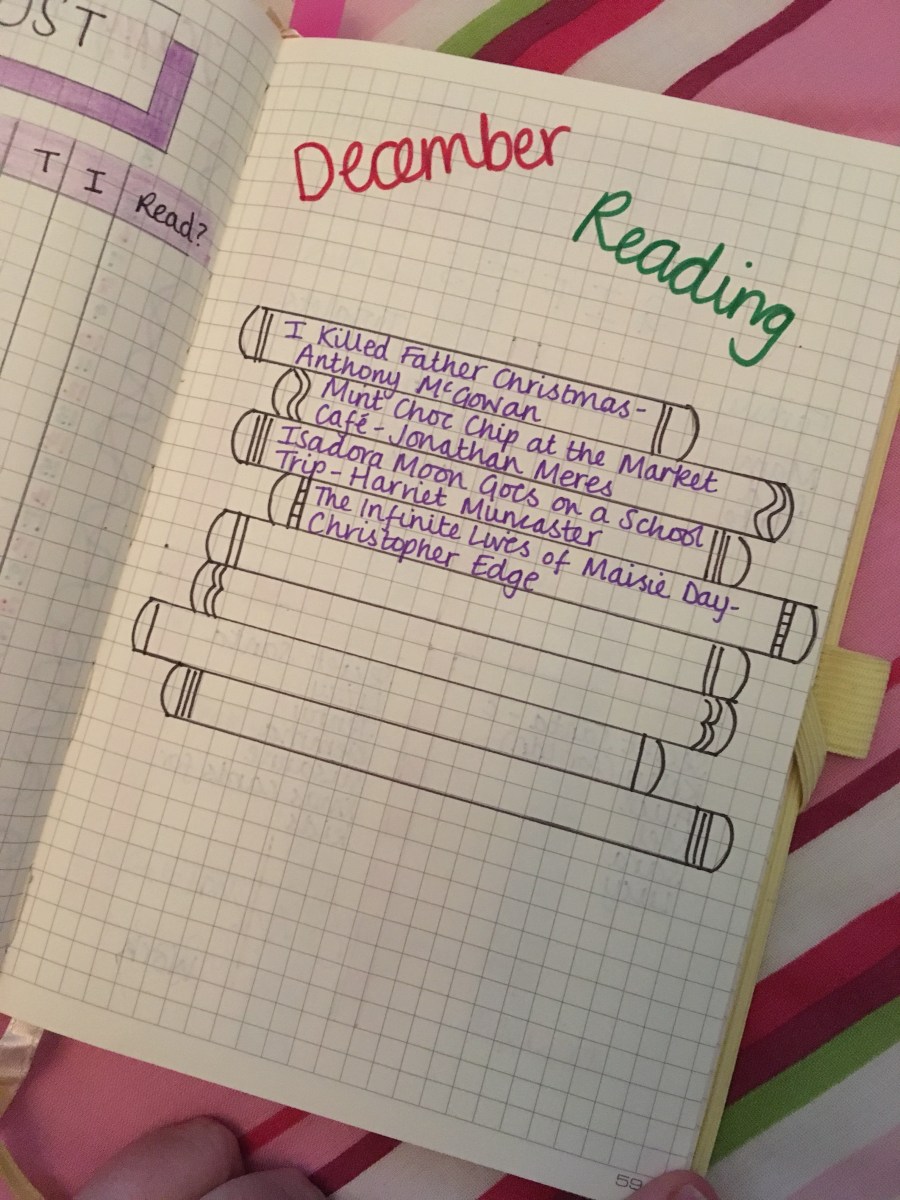 UST
T I Read?
December
Reading
I Killed Father Christmas-
Anthony McGowan
Mint Choc Chip at the Market
Café - Jonathan Meres
Isadora Moon Goes on a School
Trip - Harriet Muncaster
The Infinite Lives of Maisie Day-
Christopher Edge
59